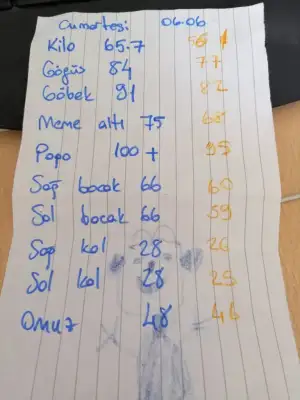 Cumartesi 06.06
Kilo 65.7 56
Göğüs 84 77
Göbek 91 82
Meme altı 75 68
Popo 100+ 95
Sağ bacak 66 60
Sol bacak 66 59
Sağ kol 28 26
Sol kol 28 25
Omuz 48 46